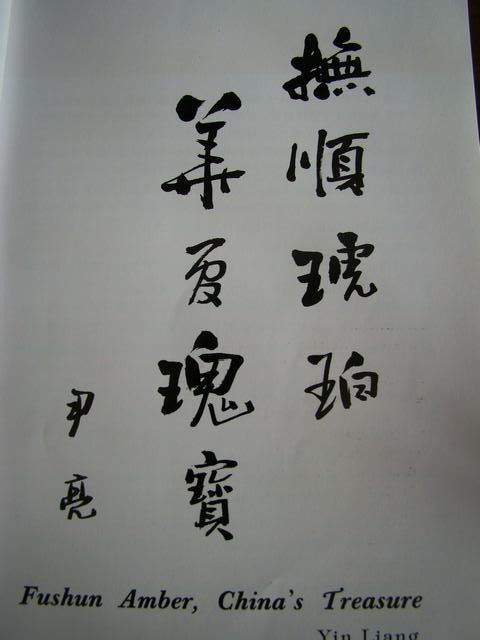 撫順琥珀
華夏瑰寶
尹亮
Fushun Amber, China's Treasure
Yin Liang